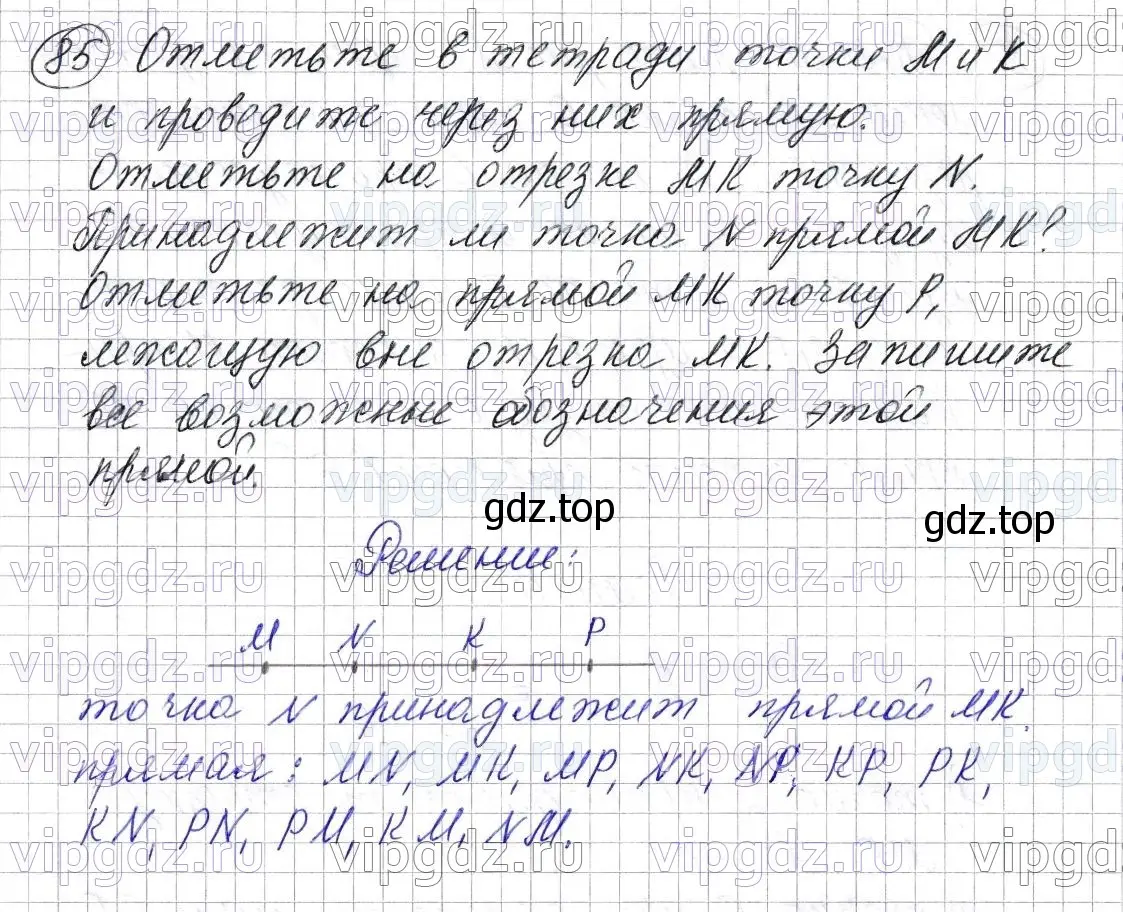 85 Отметьте в тетради точки М и К
и проведите через них прямую.
Отметьте на отрезке МК точку N.
Принадлежит ли точка N прямой МК?
Отметьте на прямой МК точку Р,
лежащую вне отрезка МК. Запишите
все возможные обозначения этой
прямой.
gdz.top
gdz.top
Решение:
М N К Р
точка N принадлежит прямой МК.
прямая: MN, MK, MP, NK, NP, KP, PK,
KN, PN, PM, KM, NM.
vipgdz.ru